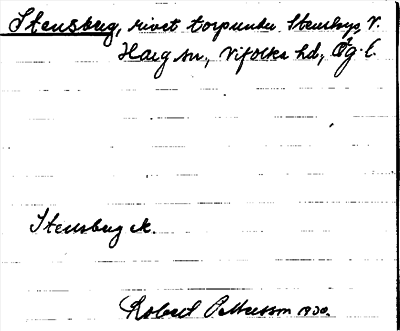 Stensberg, rivet torp under Stensby, V.
Harg sn., Vifolka hd, Ög. l.
Stensberg M.
Robert Pettersson 1930.